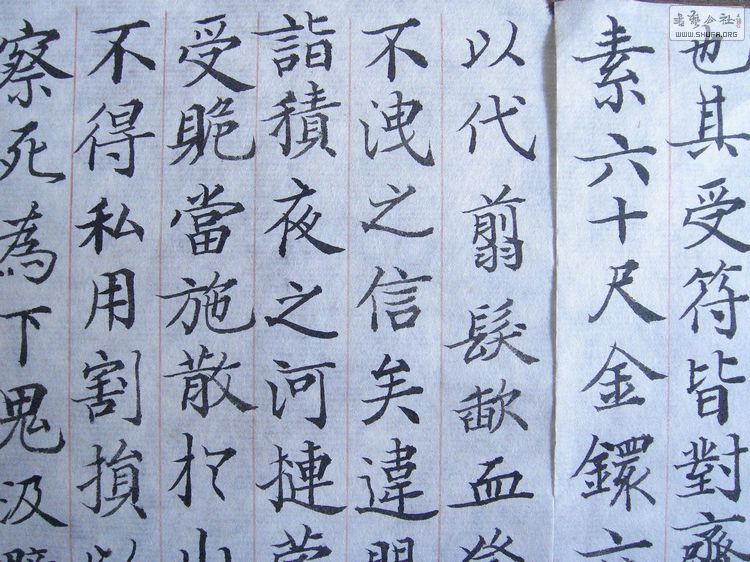 也其受符皆對齋
素六十尺金鐶六
以代翦髮歃血登
不洩之信矣違
詣積夜之河摙蒙
受貺當施散於山
不得私用割損以
察死為下鬼汲
书艺公社
WWW.SHUFA.ORG